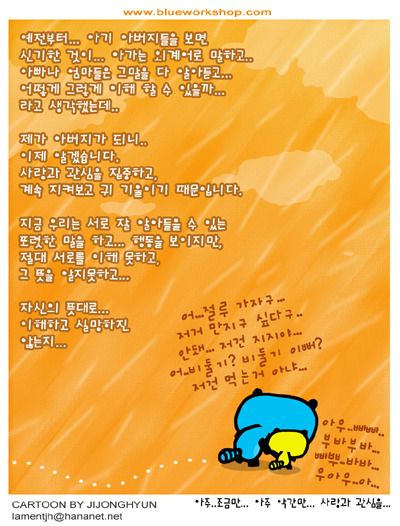 www.blueworkshop.com
예전부터... 아기 아버지들을 보면
신기한 것이... 아가는 외계어로 말하고..
아빠나 엄마들은 그말을 다 알아듣고...
어떻게 그렇게 이해 할 수 있을까...
라고 생각했는데..
제가 아버지가 되니..
이제 알겠습니다.
사랑과 관심을 집중하고,
계속 지켜보고 귀 기울이기 때문입니다.
지금 우리는 서로 잘 알아들을 수 있는
또렷한 말을 하고... 행동을 보이지만,
절대 서로를 이해 못하고,
그 뜻을 알지못하고...
자신의 뜻대로...
이해하고 실망하진
않는지...
어...절루 가자구...
저거 만지구 싶다구..
안돼... 저건 지지야...
어..비둘기? 비둘기 이뻐?
저건 먹는거 아냐...
아우..빠빠..
부바부바...
빠뿌..바바...
우아우..아...
CARTOON BY JIJONGHYUN
lamentjh@hananet.net
아주..조금만... 아주 약간만... 사랑과 관심을...